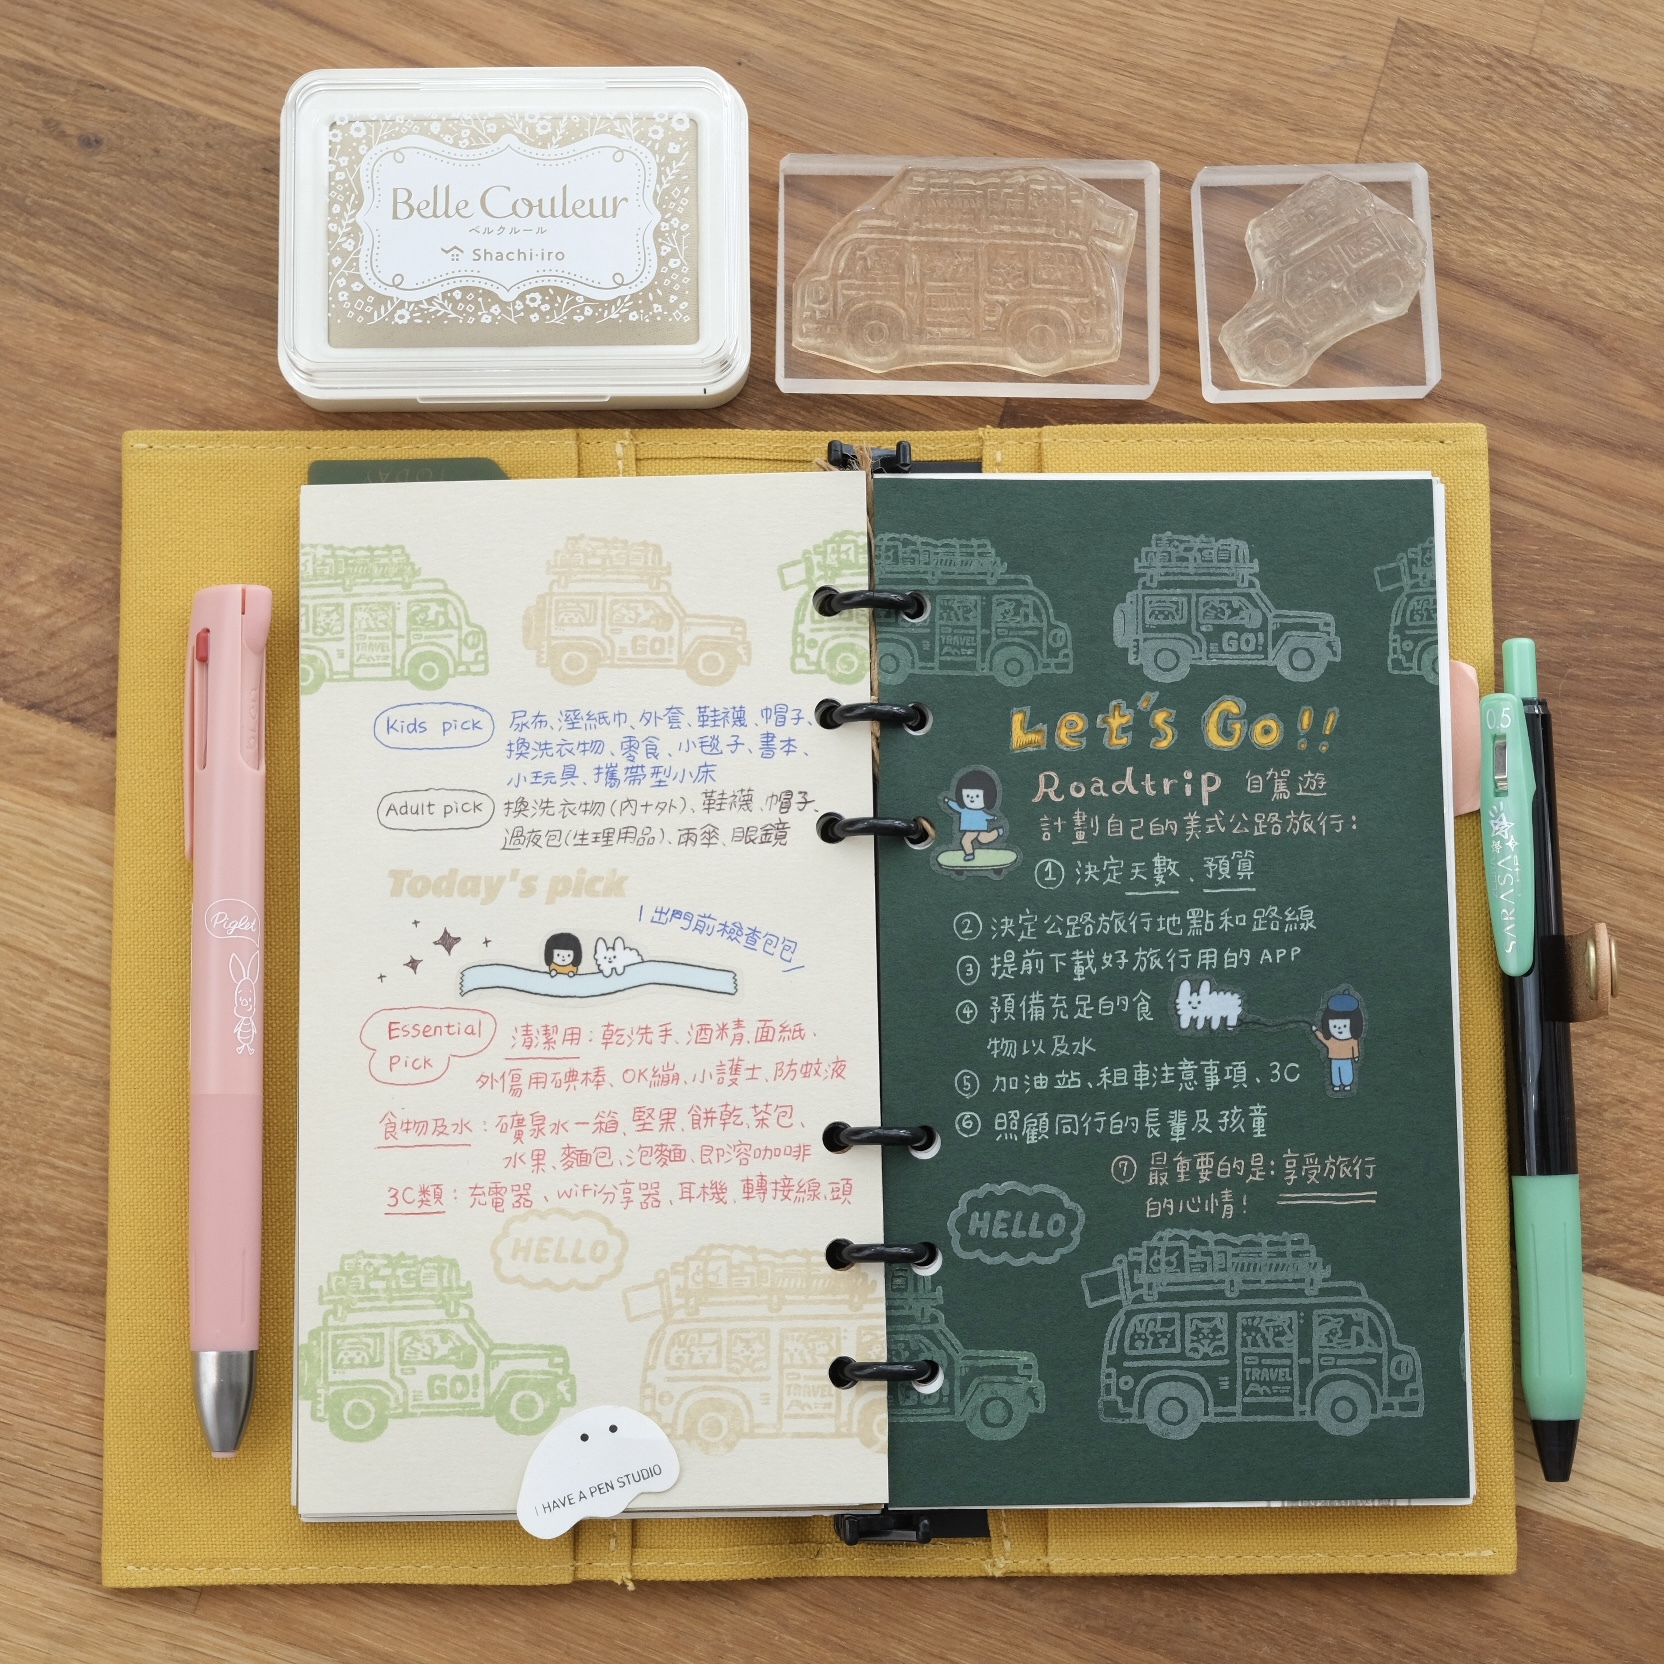 Belle Couleur
ベルクルール
Shachi·iro
TODAY
GO!
TRAVEL
TRAVEL
GO!
Kids pick
尿布、溼紙巾、外套、鞋襪、帽子、
換洗衣物、零食、小毯子、書本、
小玩具、攜帶型小床
Adult pick
換洗衣物(內+外)、鞋襪、帽子、
過夜包(生理用品)、雨傘、眼鏡
Today's pick
出門前檢查包包
Essential
Pick
清潔用：乾洗手、酒精、面紙、
外傷用碘棒、OK繃、小護士、防蚊液
食物及水：礦泉水一箱、堅果、餅乾、茶包、
水果、麵包、泡麵、即溶咖啡
3C類：充電器、wifi分享器、耳機、轉接線、頭
HELLO
GO!
TRAVEL
I HAVE A PEN STUDIO
Let's Go!!
Roadtrip 自駕遊
計劃自己的美式公路旅行：
① 決定天數、預算
② 決定公路旅行地點和路線
③ 提前下載好旅行用的APP
④ 預備充足的食
物以及水
⑤ 加油站、租車注意事項、3C
⑥ 照顧同行的長輩及孩童
⑦ 最重要的是：享受旅行
的心情！
HELLO
TRAVEL
Piglet
0.5
SARASA